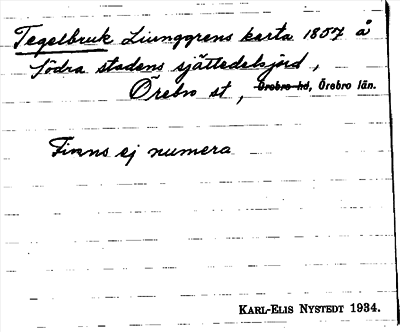 Tegelbruk Liunggrens karta 1857 å
södra stadens sjättedelsjord,
Örebro st, Örebro hd, Örebro län.
Finns ej numera
KARL-ELIS NYSTEDT 1934.